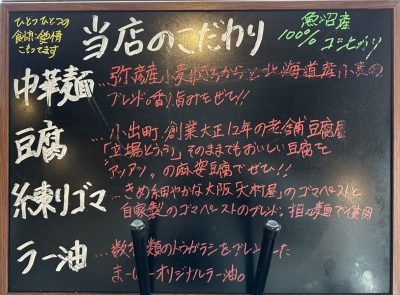 ひとつひとつの
食材に愛情
こもってます
当店のこだわり
魚沼産
100% コシヒカリ
中華麺
…弥彦産小麦ゆきちからと北海道産小麦の
ブレンド。香り旨みをぜひ!!
豆腐
…小出町、創業大正12年の老舗豆腐屋
「立場とうふ」そのままでもおいしい豆腐を
アツアツの麻婆豆腐でぜひ!!
練りゴマ
…きめ細やかな大阪「大村屋」のゴマペーストと
自家製のゴマペーストのブレンド。担々麺で使用
ラー油
…数種類のトウガラシをブレンドした
オリジナルラー油。